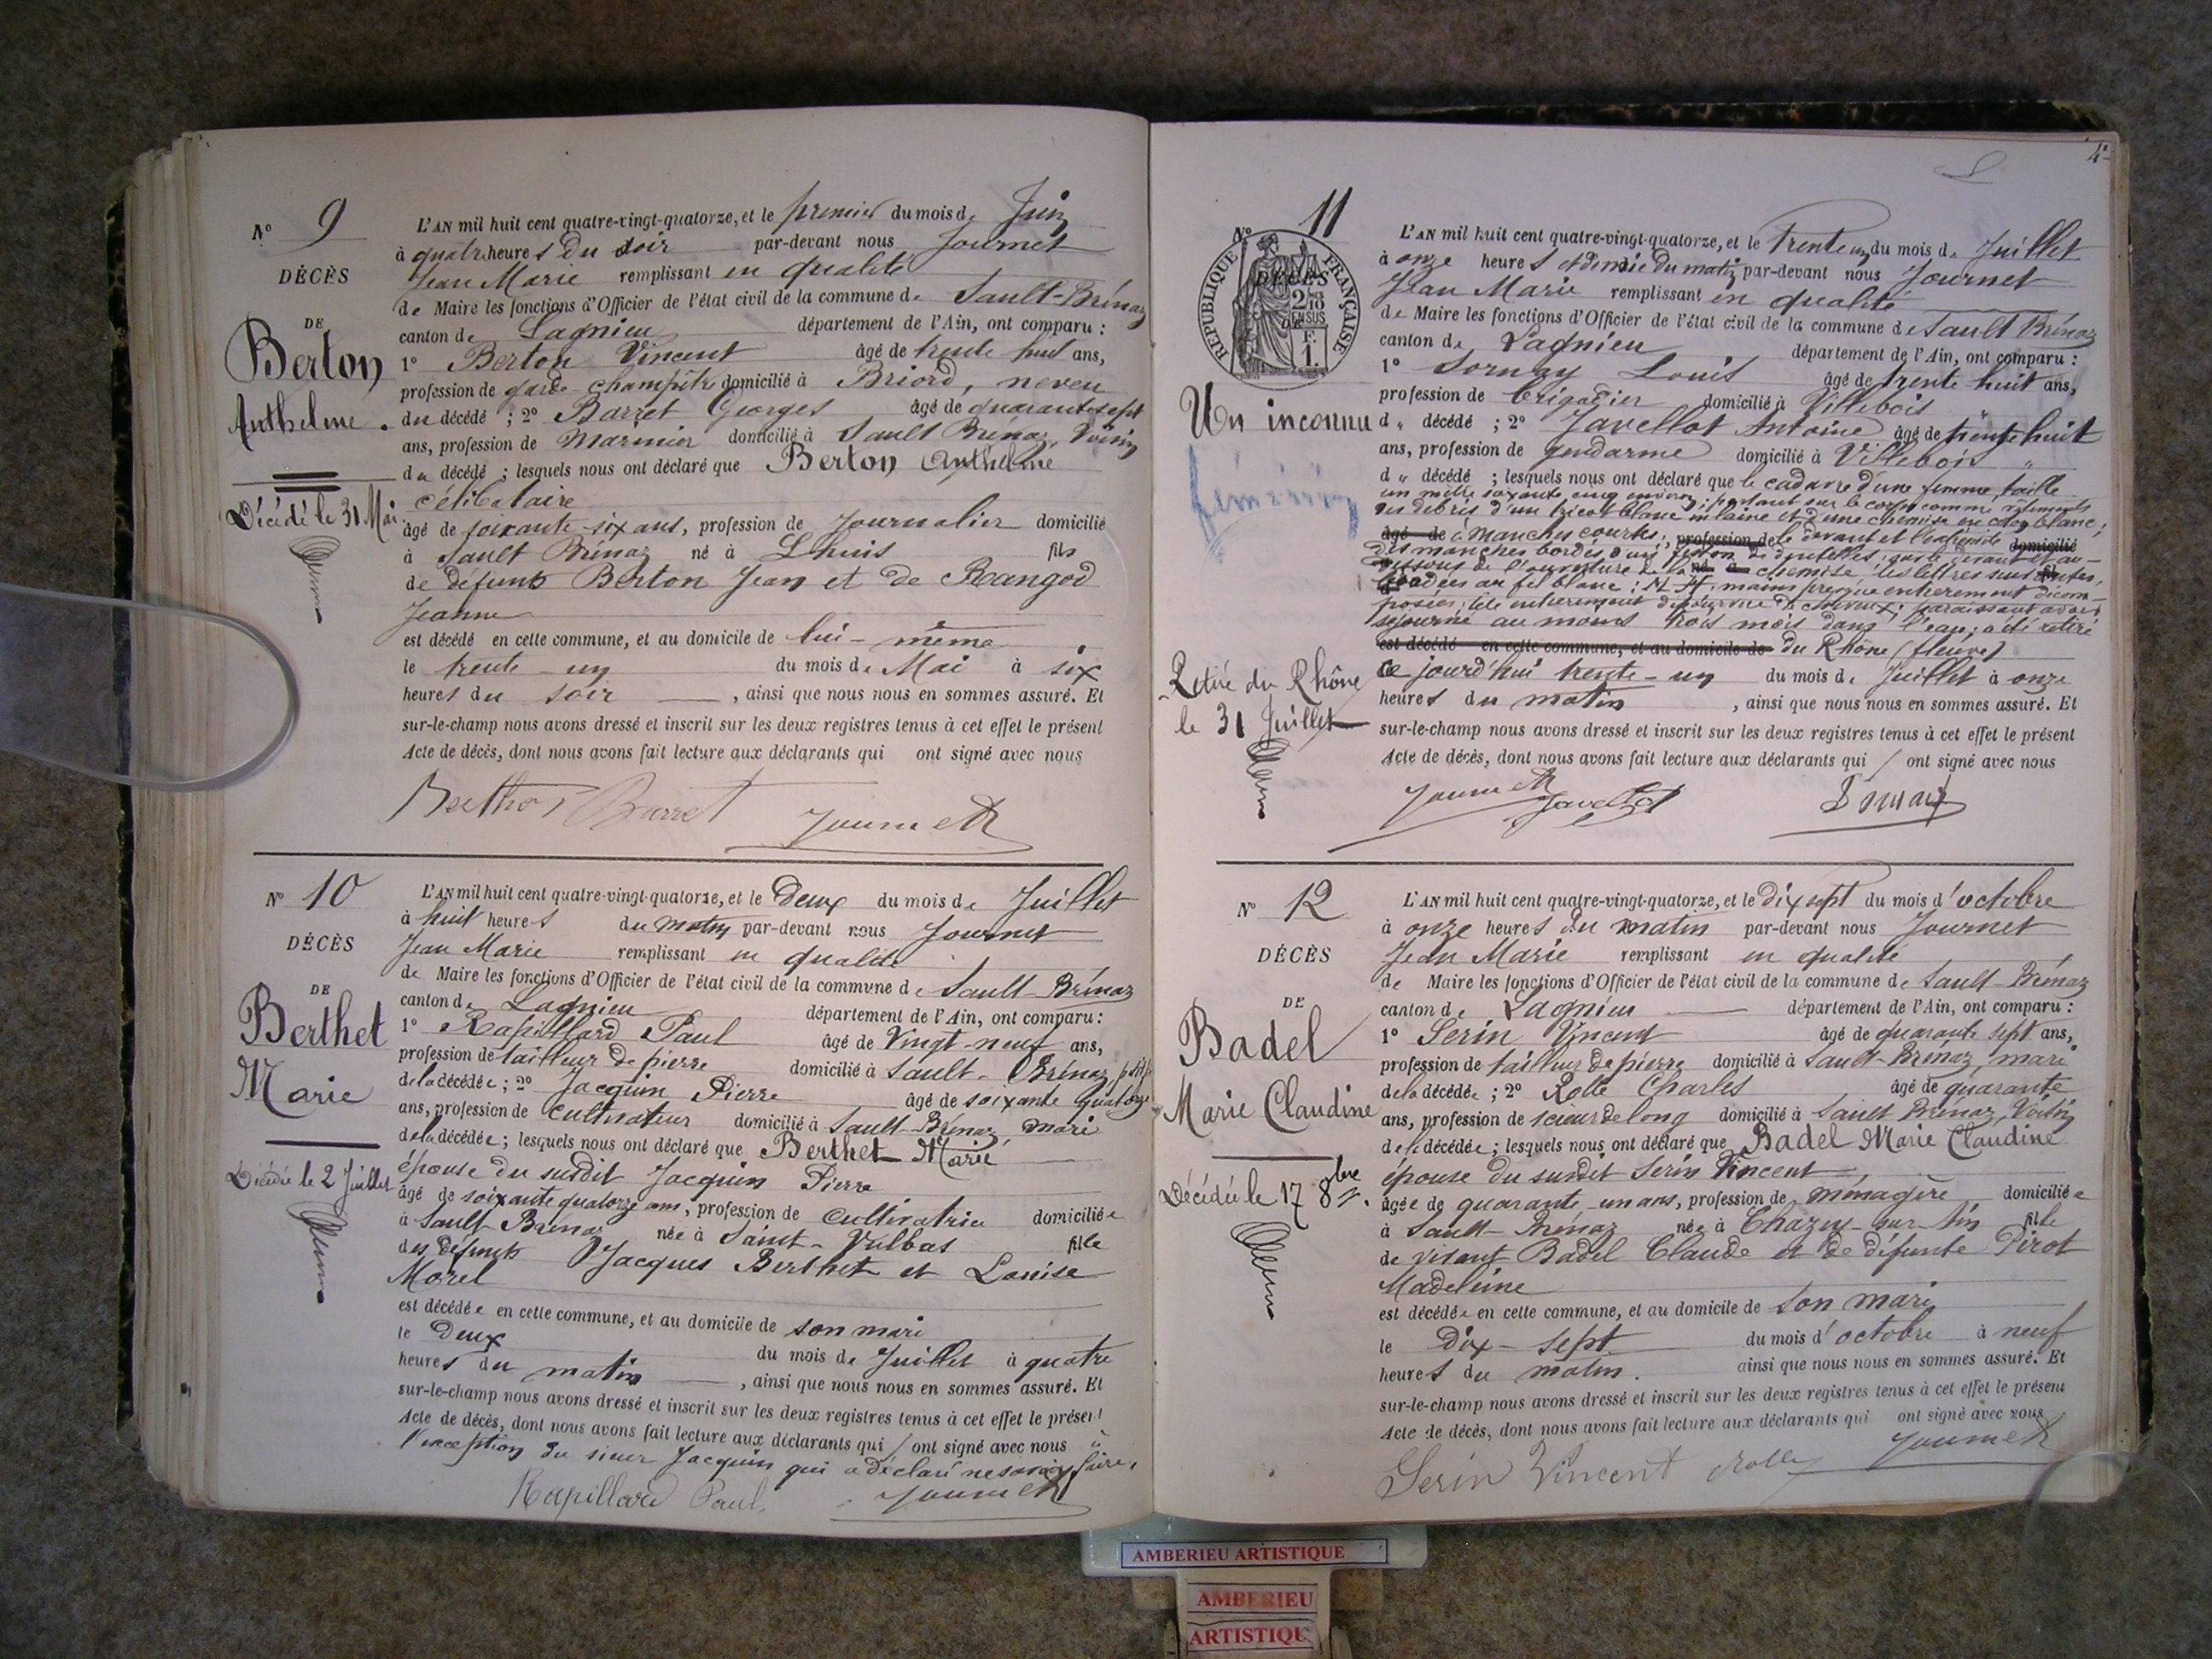 N° 9
DÉCÈS
DE
Berton
Anthelme.
Décédé le 31 Mai
L'AN mil huit cent quatre-vingt-quatorze, et le premier du mois de Juin
à quatre heures du soir par-devant nous Journet
Jean Marie remplissant en qualité
de Maire les fonctions d'Officier de l'état civil de la commune de Sault-Brénaz
canton de Lagnieu département de l'Ain, ont comparu :
1° Berton Vincent âgé de trente huit ans,
profession de garde champêtre domicilié à Briord, neveu
du décédé ; 2° Barret Georges âgé de quarante sept
ans, profession de Marinier domicilié à Sault Brénaz, Voisin
du décédé ; lesquels nous ont déclaré que Berton Anthelme
célibataire
âgé de soixante-six ans, profession de Journalier domicilié
à Sault Brénaz né à Lhuis fils
de défunts Berton Jean et de Rangod
Jeanne
est décédé en cette commune, et au domicile de lui-même
le trente-un du mois de Mai à six
heures du soir , ainsi que nous nous en sommes assuré. Et
sur-le-champ nous avons dressé et inscrit sur les deux registres tenus à cet effet le présent
Acte de décès, dont nous avons fait lecture aux déclarants qui ont signé avec nous
Barret Journet
N° 10
DÉCÈS
DE
Berthet
Marie
Décédée le 2 Juillet
L'AN mil huit cent quatre-vingt-quatorze, et le Deux du mois de Juillet
à huit heures du matin par-devant nous Journet
Jean Marie remplissant en qualité
de Maire les fonctions d'Officier de l'état civil de la commune de Sault-Brénaz
canton de Lagnieu département de l'Ain, ont comparu :
1° Rapillard Paul âgé de Vingt-neuf ans,
profession de tailleur de pierre domicilié à Sault-Brénaz
de la décédée ; 2° Jacquin Pierre âgé de soixante quatorze
ans, profession de cultivateur domicilié à Sault-Brénaz, mari
de la décédée ; lesquels nous ont déclaré que Berthet Marie
épouse du susdit Jacquin Pierre
âgé de soixante quatorze ans, profession de cultivatrice domiciliée
à Sault Brénaz née à Saint-Vulbas fille
des défunts Jacques Berthet et Louise
Morel
est décédée en cette commune, et au domicile de son mari
le Deux du mois de Juillet à quatre
heures du matin , ainsi que nous nous en sommes assuré. Et
sur-le-champ nous avons dressé et inscrit sur les deux registres tenus à cet effet le présent
Acte de décès, dont nous avons fait lecture aux déclarants qui ont signé avec nous à
l'exception du sieur Jacquin qui a déclaré ne savoir faire.
Rapillard Paul, Journet
4
N° 11
RÉPUBLIQUE FRANÇAISE
DÉCÈS
2/10 EN SUS
F. 1.
Un inconnu
féminin
Retiré du Rhône
le 31 Juillet
L'AN mil huit cent quatre-vingt-quatorze, et le Trente un du mois de Juillet
à onze heures et demie du matin par-devant nous Journet
Jean Marie remplissant en qualité
de Maire les fonctions d'Officier de l'état civil de la commune de Sault Brénaz
canton de Lagnieu département de l'Ain, ont comparu :
1° Sornay Louis âgé de trente huit ans,
profession de brigadier domicilié à Villebois
d " décédé ; 2° Javellot Antoine âgé de trente huit
ans, profession de gendarme domicilié à Villebois "
d " décédé ; lesquels nous ont déclaré que le cadavre d'une femme, taille
un mètre soixante cinq environ ; portant sur le corps comme vêtements
des débris d'un tricot blanc en laine et d'une chemise en coton blanc,
âgé de à manches courtes ; profession de le devant et l'extrémité domicilié
des manches bordés d'un feston de dentelles ; sur le devant et au-
dessous de l'ouverture de la né à chemise, les lettres suivantes,
brodées au fil blanc : M-H, mains presque entièrement décom-
posées ; tête entièrement dépourvue de cheveux ; paraissant avoir
séjourné au moins trois mois dans l'eau ; a été retiré
est décédé en cette commune, et au domicile de du Rhône (fleuve)
Ce jourd'hui trente-un du mois de Juillet à onze
heures du matin , ainsi que nous nous en sommes assuré. Et
sur-le-champ nous avons dressé et inscrit sur les deux registres tenus à cet effet le présent
Acte de décès, dont nous avons fait lecture aux déclarants qui ont signé avec nous
Journet Javellot Sornay
N° 12
DÉCÈS
DE
Badel
Marie Claudine
Décédée le 17 8bre
L'AN mil huit cent quatre-vingt-quatorze, et le dix sept du mois d'octobre
à onze heures du matin par-devant nous Journet
Jean Marie remplissant en qualité
de Maire les fonctions d'Officier de l'état civil de la commune de Sault-Brénaz
canton de Lagnieu département de l'Ain, ont comparu :
1° Serin Vincent âgé de quarante sept ans,
profession de tailleur de pierre domicilié à Sault-Brénaz, mari
de la décédée ; 2° Rolle Charles âgé de quarante
ans, profession de scieur de long domicilié à Sault Brénaz, Voisin
de la décédée ; lesquels nous ont déclaré que Badel Marie Claudine
épouse du susdit Serin Vincent
âgée de quarante-un ans, profession de ménagère domiciliée
à Sault-Brénaz née à Chazey-sur-Ain fille
de vivant Badel Claude et de défunte Pirot
Madeleine
est décédée en cette commune, et au domicile de son mari
le Dix-sept du mois d'octobre à neuf
heures du matin. ainsi que nous nous en sommes assuré. Et
sur-le-champ nous avons dressé et inscrit sur les deux registres tenus à cet effet le présent
Acte de décès, dont nous avons fait lecture aux déclarants qui ont signé avec nous
Serin Vincent Rolle Journet
AMBERIEU ARTISTIQUE
AMBERIEU
ARTISTIQU